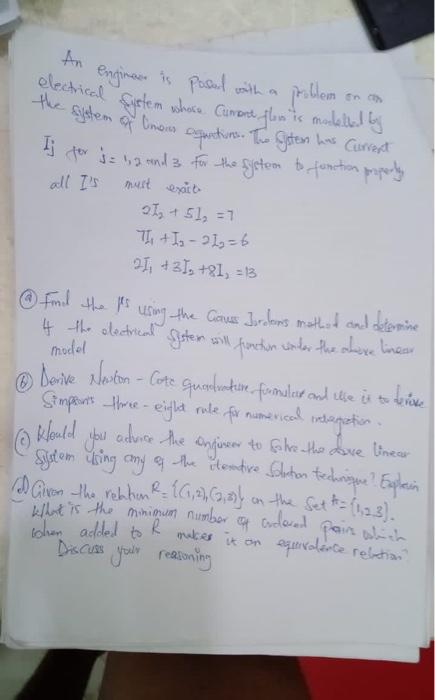 An engineer is posed with a problem on an
electrical system whose Current flow is modelled by
the system of linear equations. The system has Current
Ij for j = 1, 2 and 3. For the system to function properly
all I's must exist.
2I₂ + 5I₃ = 7
7I₁ + I₂ - 2I₃ = 6
2I₁ + 3I₂ + 8I₃ = 13
(a) Find the I's using the Gauss Jordans method and determine
if the electrical system will function under the above linear
model
(b) Derive Newton - Cote quadrature formular and use it to derive
Simpson's three - eight rule for numerical integration.
(c) Would you advice the engineer to solve the above linear
system using any of the iterative solution technique? Explain
(d) Given the relation R = {(1,2), (2,3)} on the set A = {1,2,3}.
What is the minimum number of ordered pairs which
when added to R makes it an equivalence relation?
Discuss your reasoning